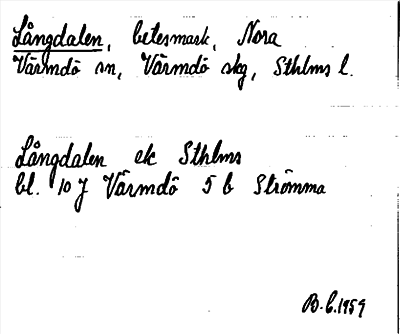 Långdalen, betesmark, Nora
Värmdö sn, Värmdö skg, Sthlms l.
Långdalen ek Sthlms
bl. 10 J Värmdö 5 b Strömma
B.C.1959